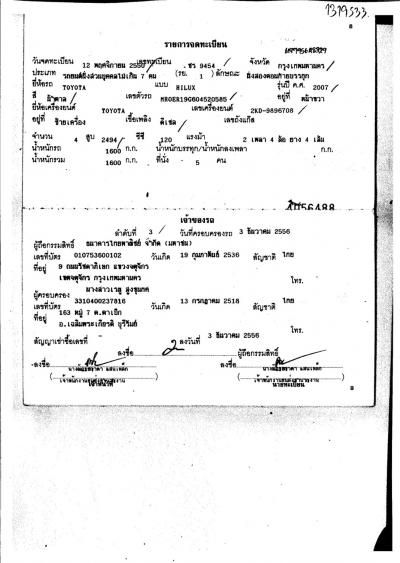 1319533.
รายการจดทะเบียน
วันจดทะเบียน 12 พฤศจิกายน 2550 เลขทะเบียน ชร 9454 จังหวัด กรุงเทพมหานคร
ประเภท รถยนต์นั่งส่วนบุคคลไม่เกิน 7 คน (รย. 1) ลักษณะ นั่งสองตอนท้ายบรรทุก
ยี่ห้อรถ TOYOTA แบบ HILUX รุ่นปี ค.ศ. 2007
สี น้ำตาล เลขตัวรถ MR0ER19G604520585 อยู่ที่ หน้าขวา
ยี่ห้อเครื่องยนต์ TOYOTA เลขเครื่องยนต์ 2KD-9896708
อยู่ที่ ซ้ายเครื่อง เชื้อเพลิง ดีเซล เลขถังแก๊ส
จำนวน 4 สูบ 2494 ซีซี 120 แรงม้า 2 เพลา 4 ล้อ ยาง 4 เส้น
น้ำหนักรถ 1600 ก.ก. น้ำหนักบรรทุก/น้ำหนักลงเพลา ก.ก.
น้ำหนักรวม 1600 ก.ก. ที่นั่ง 5 คน
เจ้าของรถ
ลำดับที่ 3 วันที่ครอบครองรถ 3 ธันวาคม 2556
ผู้ถือกรรมสิทธิ์ ธนาคารไทยพาณิชย์ จำกัด (มหาชน)
เลขที่บัตร 010753600102 วันเกิด 19 กุมภาพันธ์ 2536 สัญชาติ ไทย
ที่อยู่ 9 ถนนรัชดาภิเษก แขวงจตุจักร
เขตจตุจักร กรุงเทพมหานคร โทร.
ผู้ครอบครอง นางสาวเรณู สูงขุนทด
เลขที่บัตร 3310400237816 วันเกิด 13 กรกฎาคม 2518 สัญชาติ ไทย
ที่อยู่ 163 หมู่ 7 ต.ตาเป๊ก
อ.เฉลิมพระเกียรติ บุรีรัมย์ โทร.
สัญญาเช่าซื้อเลขที่ ลงวันที่ 3 ธันวาคม 2556
ลงชื่อ ผู้ถือกรรมสิทธิ์
ลงชื่อ ลงชื่อ
นายทะเบียน